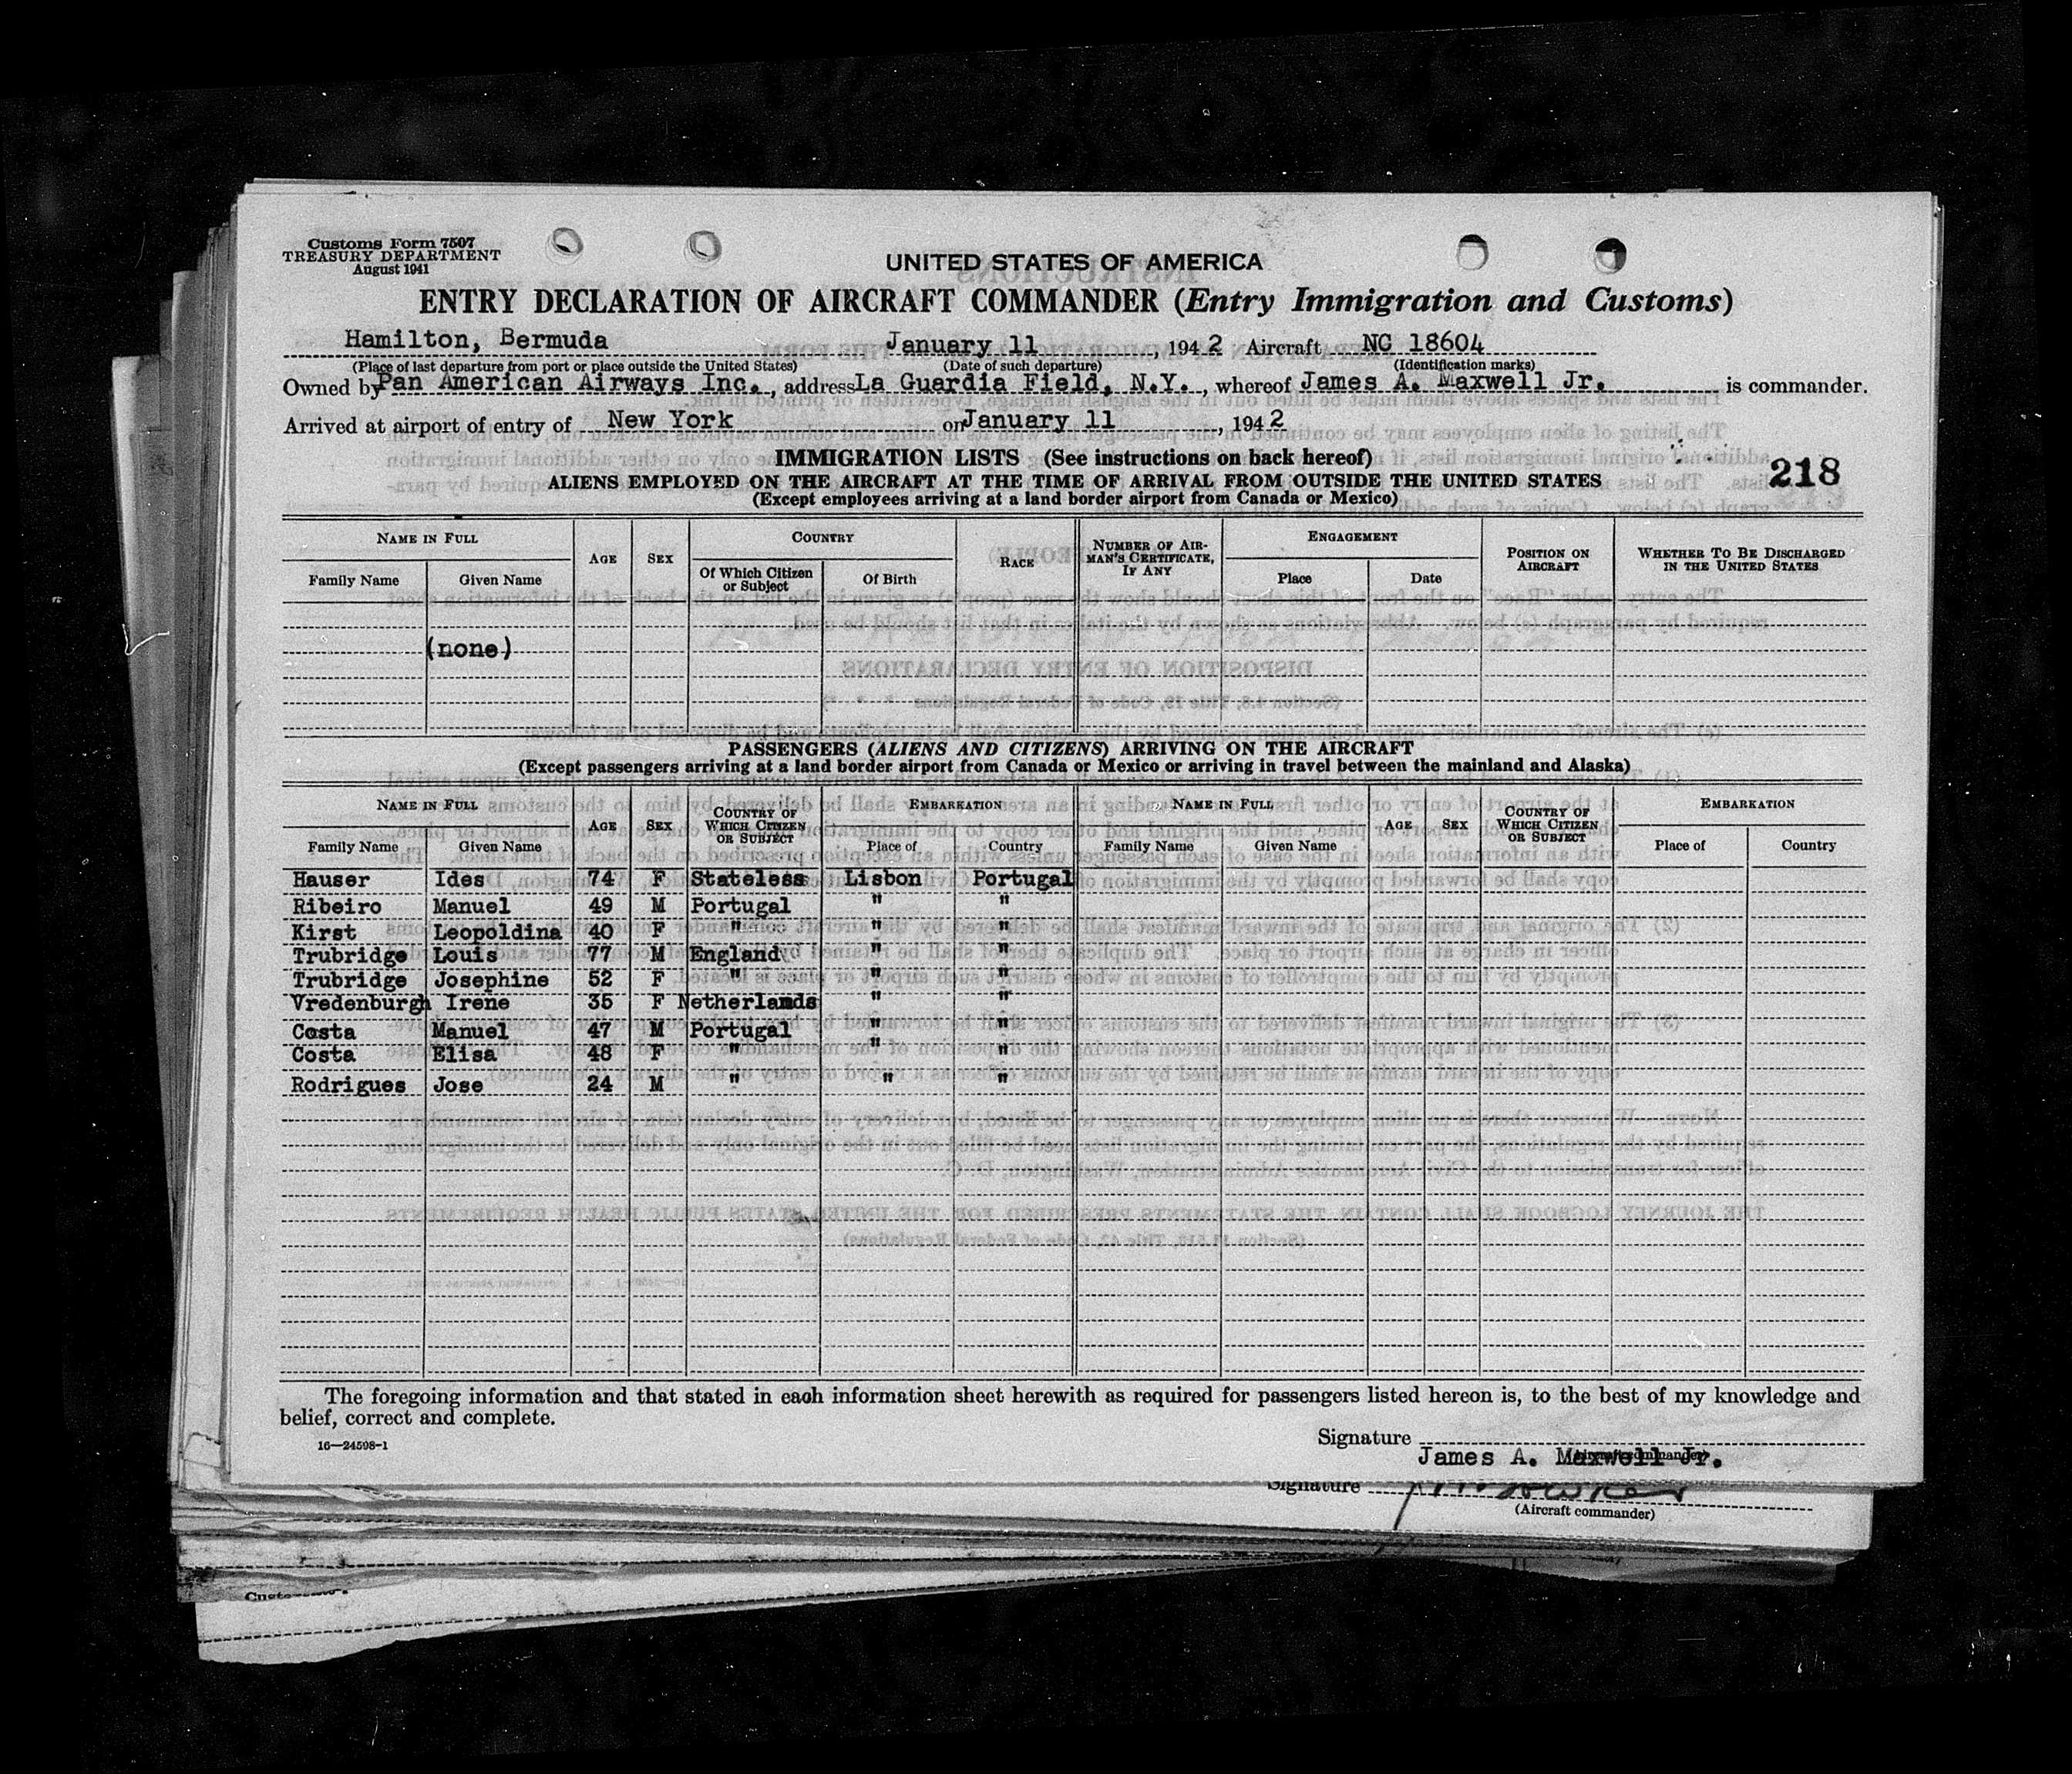 Customs Form 7507
TREASURY DEPARTMENT
August 1941
UNITED STATES OF AMERICA
ENTRY DECLARATION OF AIRCRAFT COMMANDER (Entry Immigration and Customs)
Hamilton, Bermuda January 11, 1942 Aircraft NC 18604
(Place of last departure from port or place outside the United States) (Date of such departure) (Identification marks)
Owned by Pan American Airways Inc., address La Guardia Field, N.Y., whereof James A. Maxwell Jr. is commander.
Arrived at airport of entry of New York on January 11, 1942
IMMIGRATION LISTS (See instructions on back hereof)
218
ALIENS EMPLOYED ON THE AIRCRAFT AT THE TIME OF ARRIVAL FROM OUTSIDE THE UNITED STATES
(Except employees arriving at a land border airport from Canada or Mexico)
NAME IN FULL AGE SEX COUNTRY RACE NUMBER OF AIRMAN'S CERTIFICATE, IF ANY ENGAGEMENT POSITION ON AIRCRAFT WHETHER TO BE DISCHARGED IN THE UNITED STATES
Family Name Given Name Of Which Citizen or Subject Of Birth Place Date
(none)
PASSENGERS (ALIENS AND CITIZENS) ARRIVING ON THE AIRCRAFT
(Except passengers arriving at a land border airport from Canada or Mexico or arriving in travel between the mainland and Alaska)
NAME IN FULL AGE SEX COUNTRY OF WHICH CITIZEN OR SUBJECT EMBARKATION NAME IN FULL AGE SEX COUNTRY OF WHICH CITIZEN OR SUBJECT EMBARKATION
Family Name Given Name Place of Country Family Name Given Name Place of Country
Hauser Ides 74 F Stateless Lisbon Portugal
Ribeiro Manuel 49 M Portugal " "
Kirst Leopoldina 40 F " " "
Trubridge Louis 77 M England " "
Trubridge Josephine 52 F " " "
Vredenburgh Irene 35 F Netherlands " "
Costa Manuel 47 M Portugal " "
Costa Elisa 48 F " " "
Rodrigues Jose 24 M " " "
The foregoing information and that stated in each information sheet herewith as required for passengers listed hereon is, to the best of my knowledge and
belief, correct and complete.
16—24598-1
Signature
James A. Maxwell Jr.
(Aircraft commander)
Signature
(Aircraft commander)